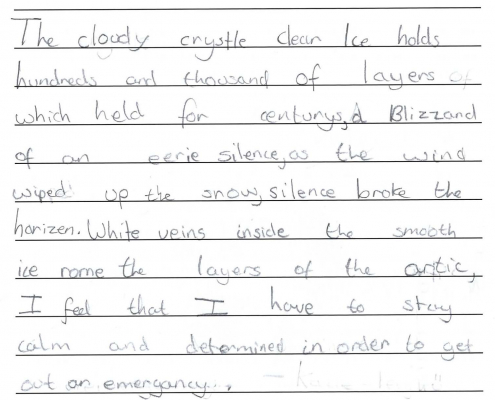 The cloudy crystle clean Ice holds
hundreds and thousand of layers of
which held for centurys, a Blizzand
of an eerie silence, as the wind
wiped up the snow, silence broke the
horizen. White veins inside the smooth
ice rome the layers of the artic,
I feel that I have to stay
calm and determined in order to get
out an emergancy..